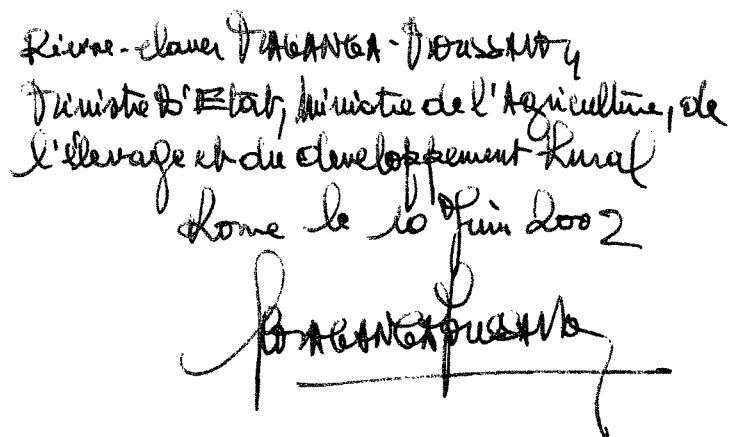 Pierre-Claver MAGANGA-MOUSSAVOU,
Ministre d'Etat, Ministre de l'Agriculture, de
l'élevage et du developpement Rural
Rome le 10 Juin 2002
MAGANGA MOUSSAVOU